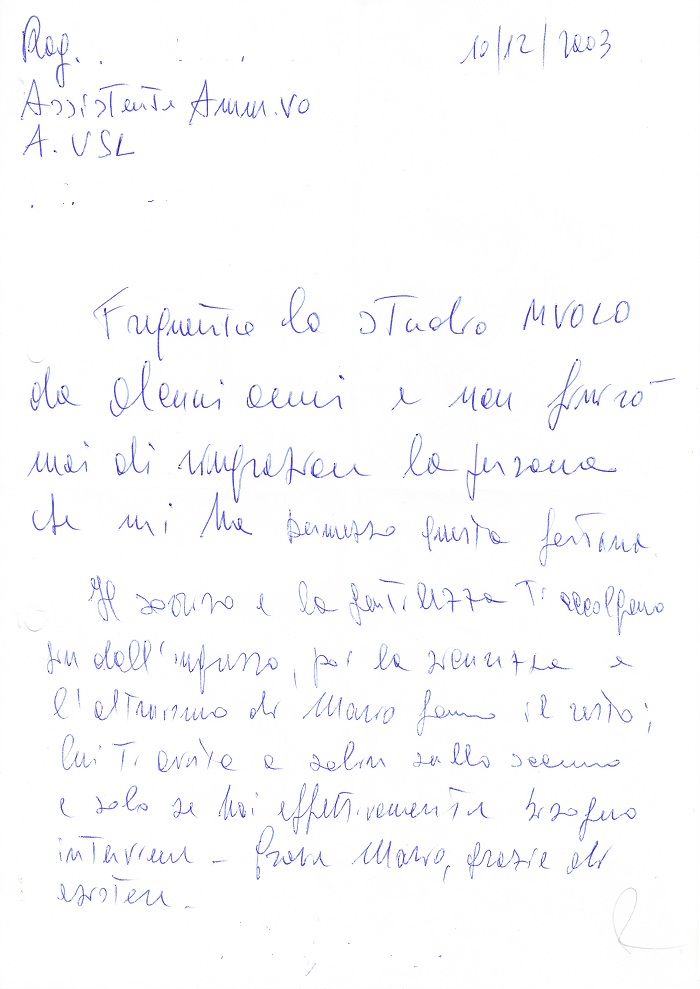 Rag.
10/12/2003
Assistente Amm.vo
A. USL
Frequento lo studio MVOLO
da alcuni anni e non finirò
mai di ringraziare la persona
che mi ha permesso questa fortuna.
Il sorriso e la gentilezza Ti accolgono
sin dall'ingresso, poi la sicurezza e
l'altruismo di Mario fanno il resto;
lui Ti aiuta a salire sullo scanno
e solo se hai effettivamente bisogno
interviene - Grazie Mario, grazie di
esistere -